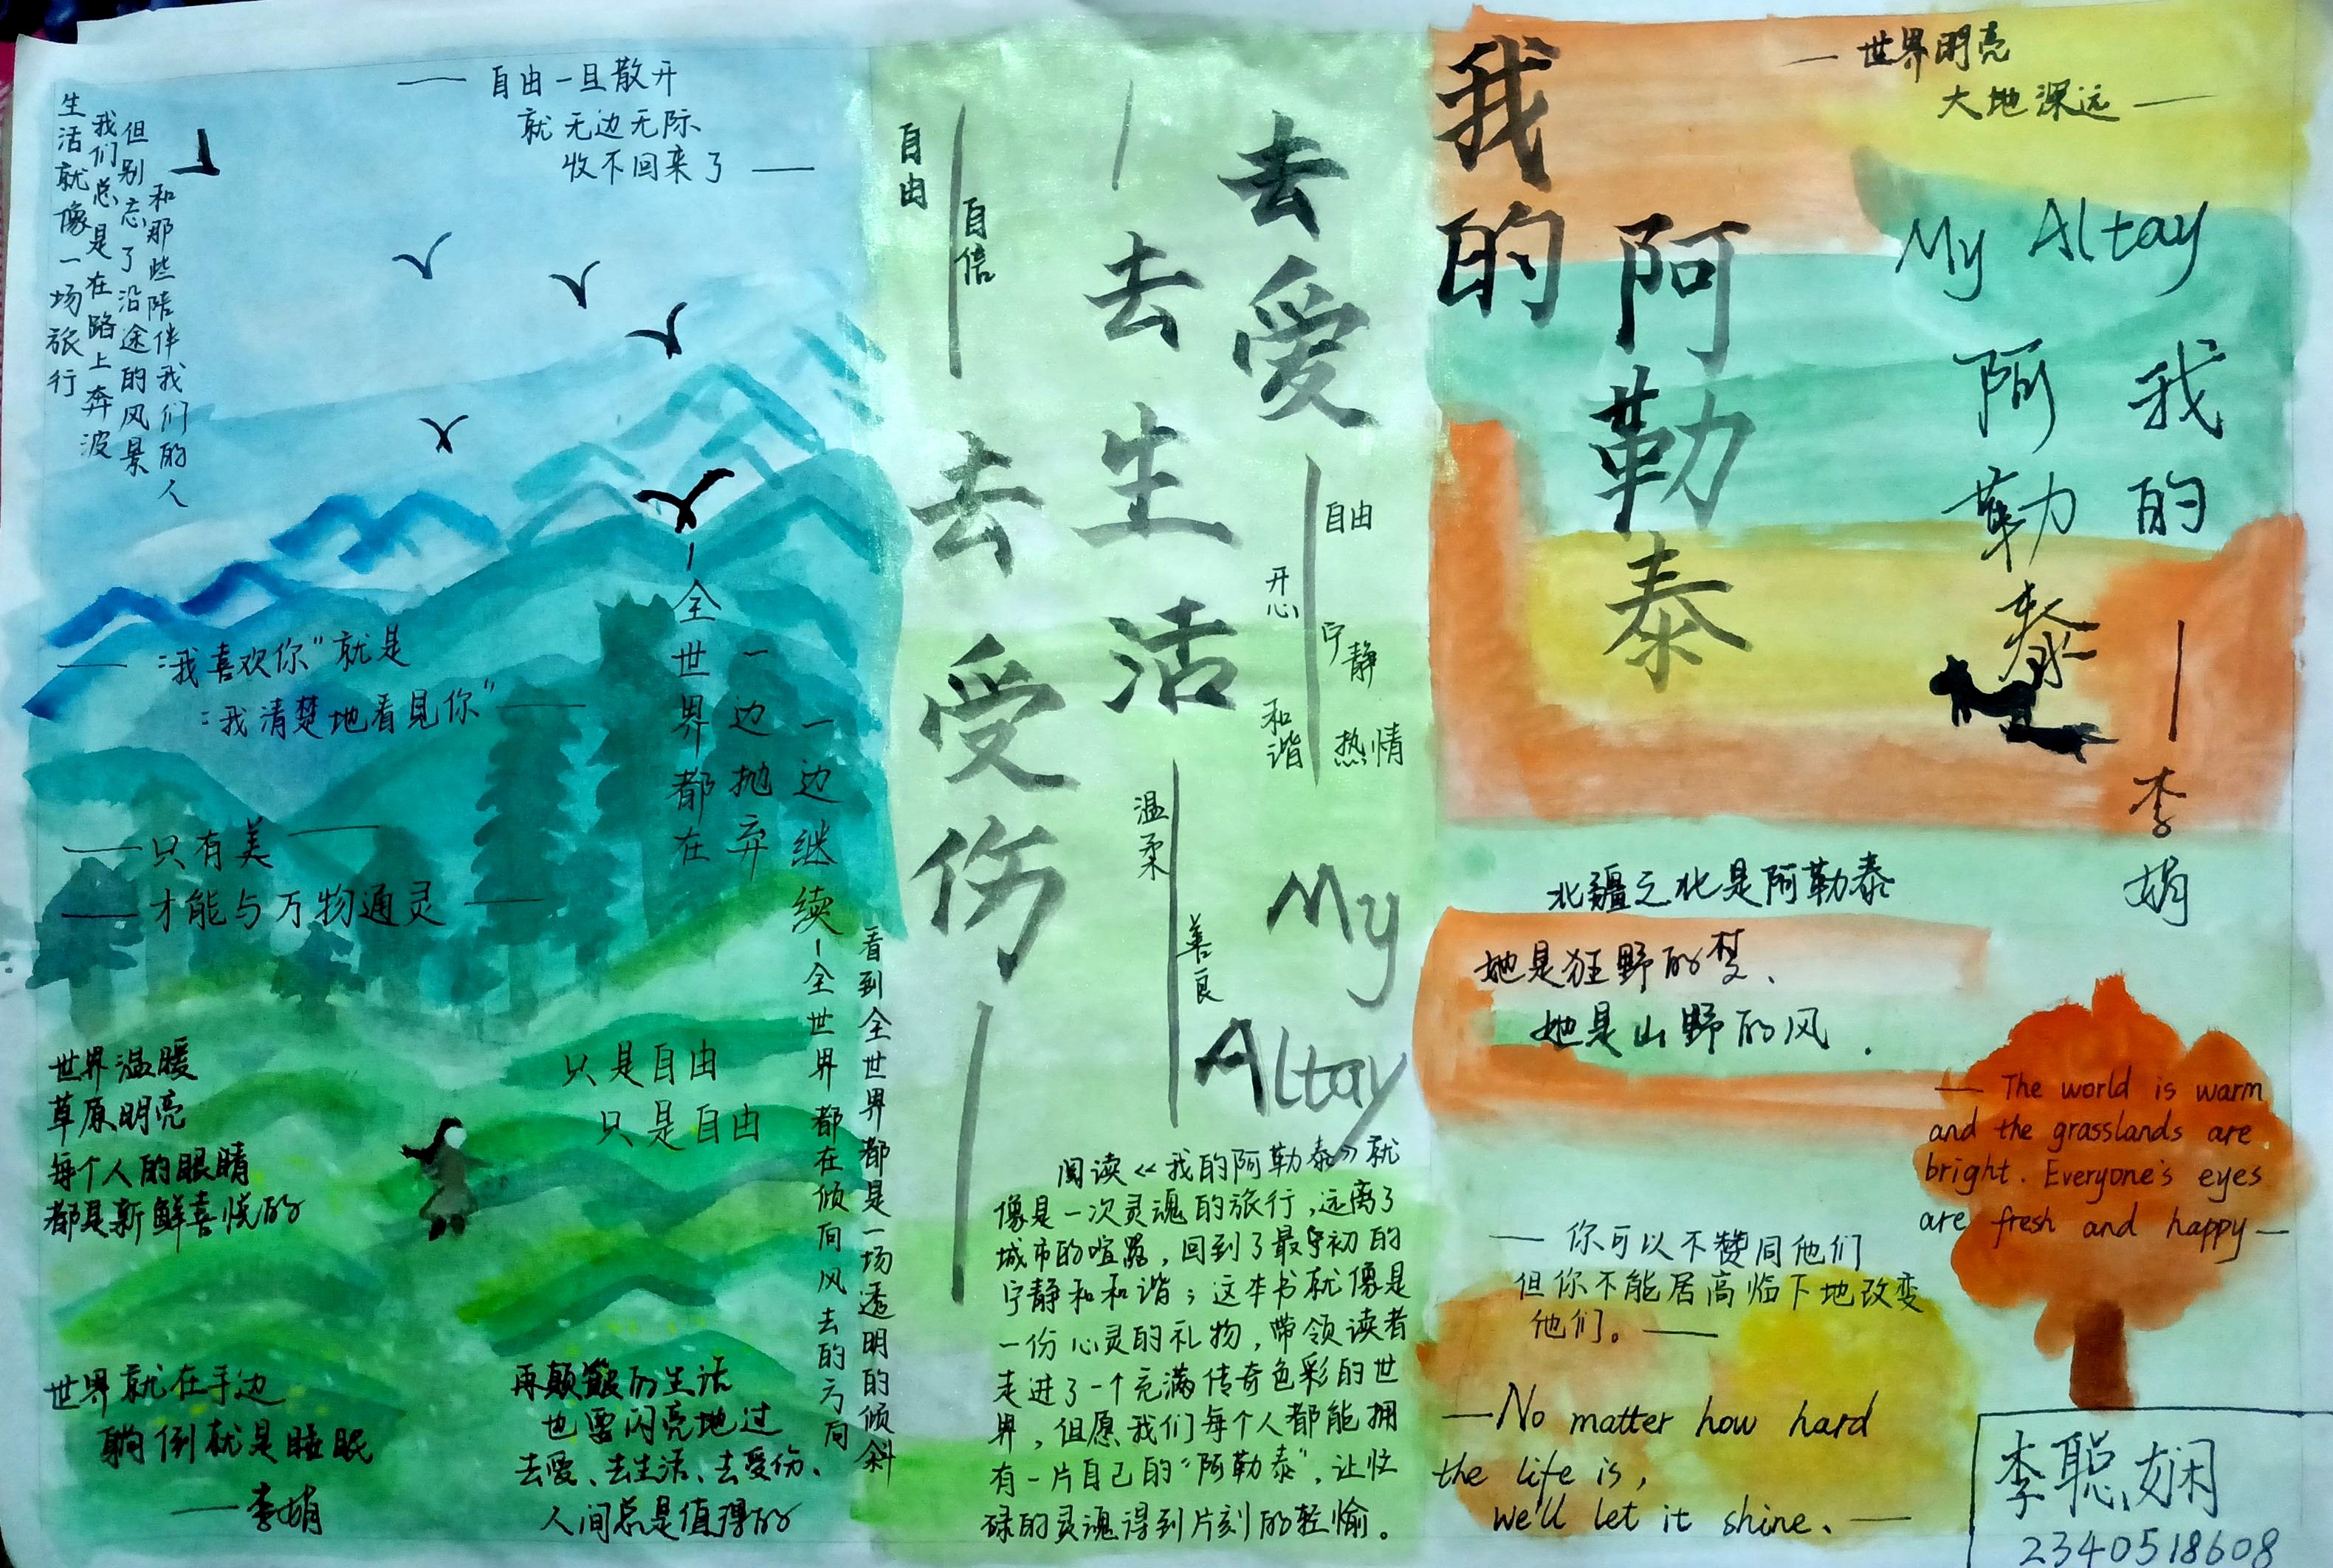 生活就像一场旅行
我们总是在路上奔波
但别忘了沿途的风景
和那些陪伴我们的人
—— 自由一旦散开
就无边无际
收不回来了 ——
—— “我喜欢你”就是
：我清楚地看见你” ——
—— 只有美 ——
—— 才能与万物通灵 ——
—全世界都在
一边抛弃
一边继续
—全世界都在倾向风去的方向
看到全世界都是一场透明的倾斜
世界温暖
草原明亮
每个人的眼睛
都是新鲜喜悦的
只是自由
只是自由
世界就在手边
躺倒就是睡眠
——李娟
再颠簸的生活
也要闪亮地过
去爱、去生活、去受伤、
人间总是值得的
自由
自信
去爱
去生活
去受伤
自由
开心
宁静
和谐
热情
温柔
善良
My
Altay
阅读《我的阿勒泰》就
像是一次灵魂的旅行,远离了
城市的喧嚣，回到了最初的
宁静和和谐；这本书就像是
一份心灵的礼物，带领读者
走进了一个充满传奇色彩的世
界，但愿我们每个人都能拥
有一片自己的“阿勒泰”，让忙
碌的灵魂得到片刻的轻愉。
我的
阿勒泰
— 世界明亮
大地深远 —
My Altay
我的
阿勒泰
—李娟
北疆之北是阿勒泰
她是狂野的梦、
她是山野的风.
— The world is warm
and the grasslands are
bright. Everyone's eyes
are fresh and happy —
— 你可以不赞同他们
但你不能居高临下地改变
他们。——
—No matter how hard
the life is,
we'll let it shine. —
李聪娴
2340518608